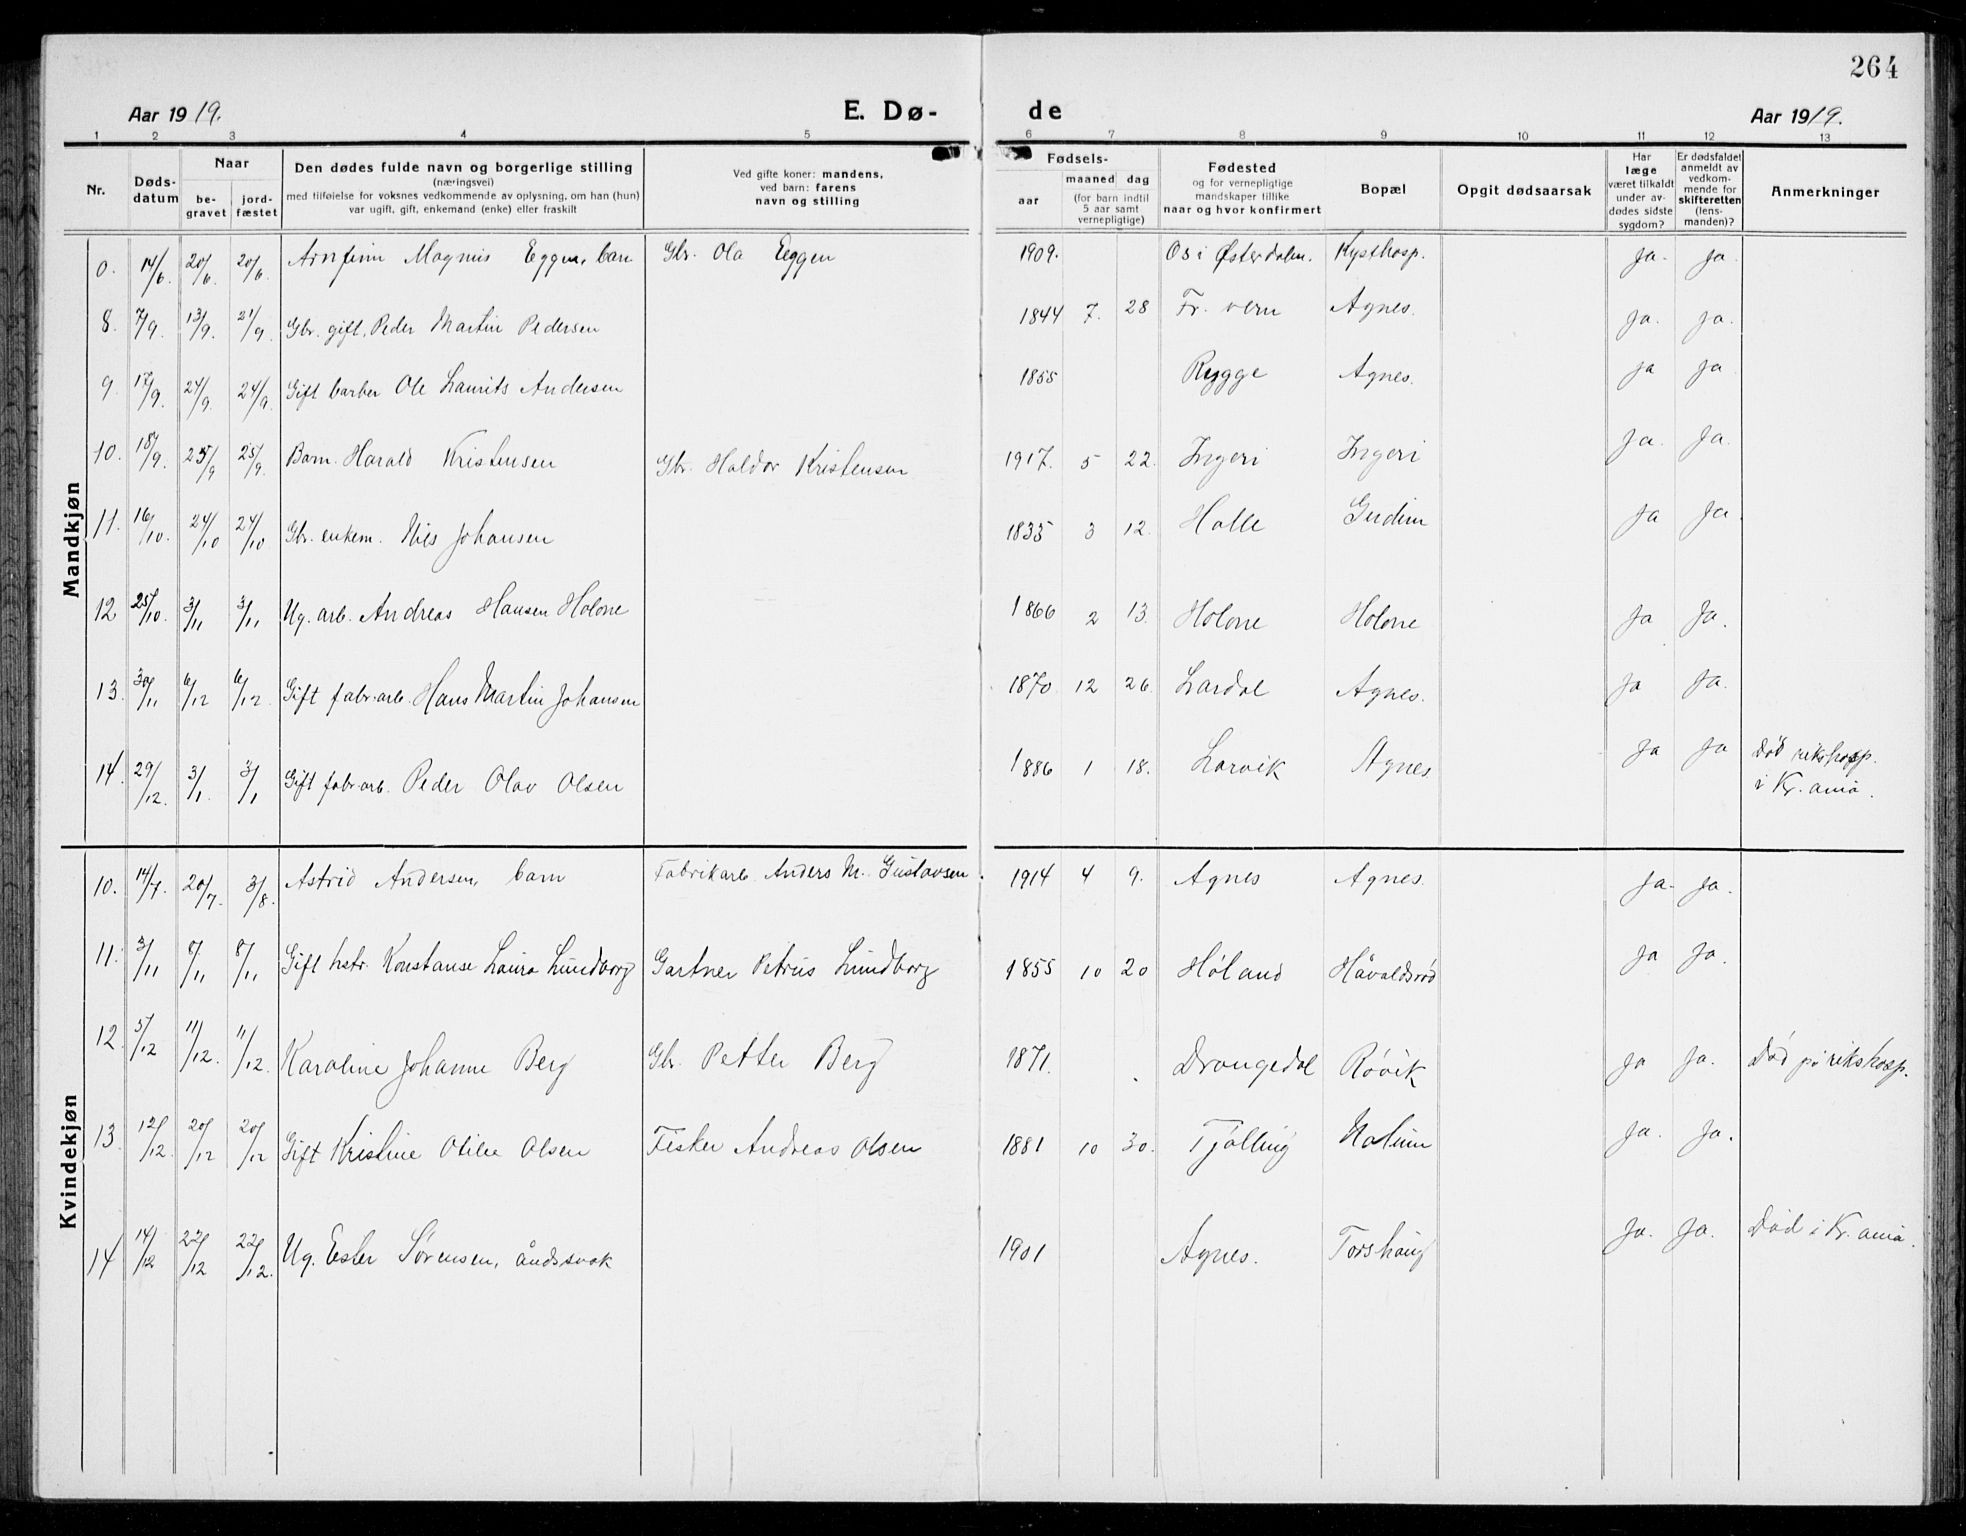 264
Aar 1919.
E. Dø-
de
Aar 1919.
1 2 3 4 5 6 7 8 9 10 11 12 13
Nr.
Døds-
datum
Naar
be-
gravet
jord-
fæstet
Den dødes fulde navn og borgerlige stilling
(næringsvei)
med tilføielse for voksnes vedkommende av oplysning, om han (hun)
var ugift, gift, enkemand (enke) eller fraskilt
Ved gifte koner: mandens,
ved barn: farens
navn og stilling
Fødsels-
aar
maaned dag
(for barn indtil
5 aar samt
vernepligtige)
Fødested
og for vernepligtige
mandskaper tillike
naar og hvor konfirmert
Bopæl
Opgit dødsaarsak
Har
læge
været tilkaldt
under av-
dødes sidste
sygdom?
Er dødsfaldet
anmeldt av
vedkom-
mende for
skifteretten
(lens-
manden)?
Anmerkninger
Mandkjøn
0. 14/6. 20/6. 20/6. Arnfinn Magnus Eggen, barn Gbr. Ola Eggen 1909. Os i Østerdalen. Kysthosp. Ja. Ja.
8. 7/9. 13/9. 21/9. Gbr. gift, Peder Martin Pedersen 1844 7. 28 Fr. vern Agnes. Ja. Ja.
9. 17/9. 24/9. 24/9 Gift barber Ole Laurits Andersen 1855 Rygge Agnes. Ja Ja
10. 18/9. 25/9 25/9. Barn. Harald Kristensen Gbr. Haldor Kristensen 1917. 5 22. Ingeri Ingeri Ja. Ja.
11. 16/10. 24/10 24/10 Gbr. enkem. Nils Johansen 1835 3 12. Halle Gudim Ja Ja
12 25/10. 3/11 3/11 Ug. arb. Andreas Hansen Holone 1866 2 13. Holone Holone Ja Ja.
13. 30/11 6/12 6/12. Gift fabr. arb. Hans Martin Johansen 1870 12 26. Lardal Agnes. Ja Ja.
14. 29/12. 3/1. 3/1 Gift fabr. arb. Peder Olav Olsen 1886 1 18. Larvik Agnes Ja Ja Død rikshosp.
i Kr.ania.
Kvindekjøn
10. 14/7. 20/7. 3/8. Astrid Andersen, barn Fabrikarb. Anders M. Gustavsen. 1914 4 9. Agnes Agnes. Ja. Ja.
11. 3/11 8/11 8/11 Gift hstr. Konstanse Laura Lundborg Gartner Petrus Lundborg 1855 10 20 Høland Håvaldsrød Ja Ja.
12 5/12 11/12. 11/12. Karoline Johanne Berg Gbr. Petter Berg 1871. Drangedal Røvik Ja Ja. Død på rikshosp.
13 12/12. 20/12 20/12 Gift Kristine Otilie Olsen Fisker Andreas Olsen 1881 10 30. Tjølling Nalum Ja. Ja.
14 14/12 22/12 22/12. Ug. Ester Sørensen, åndssvak 1901 Agnes. Torshaug Ja. Ja. Død i Kr.ania.